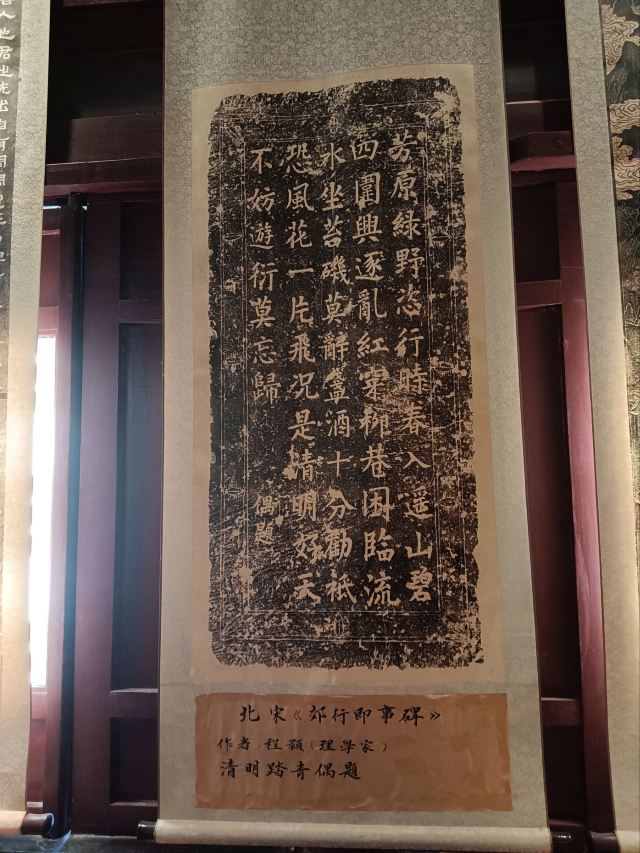 芳原綠野恣行時春入遥山碧
四圍興逐亂紅穿柳巷困臨流
水坐苔磯莫辭盞酒十分勸祇
恐風花一片飛况是清明好天
不妨遊衍莫忘歸 偶題
北宋《郊行即事碑》
作者 程顥(理學家)
清明踏青偶題